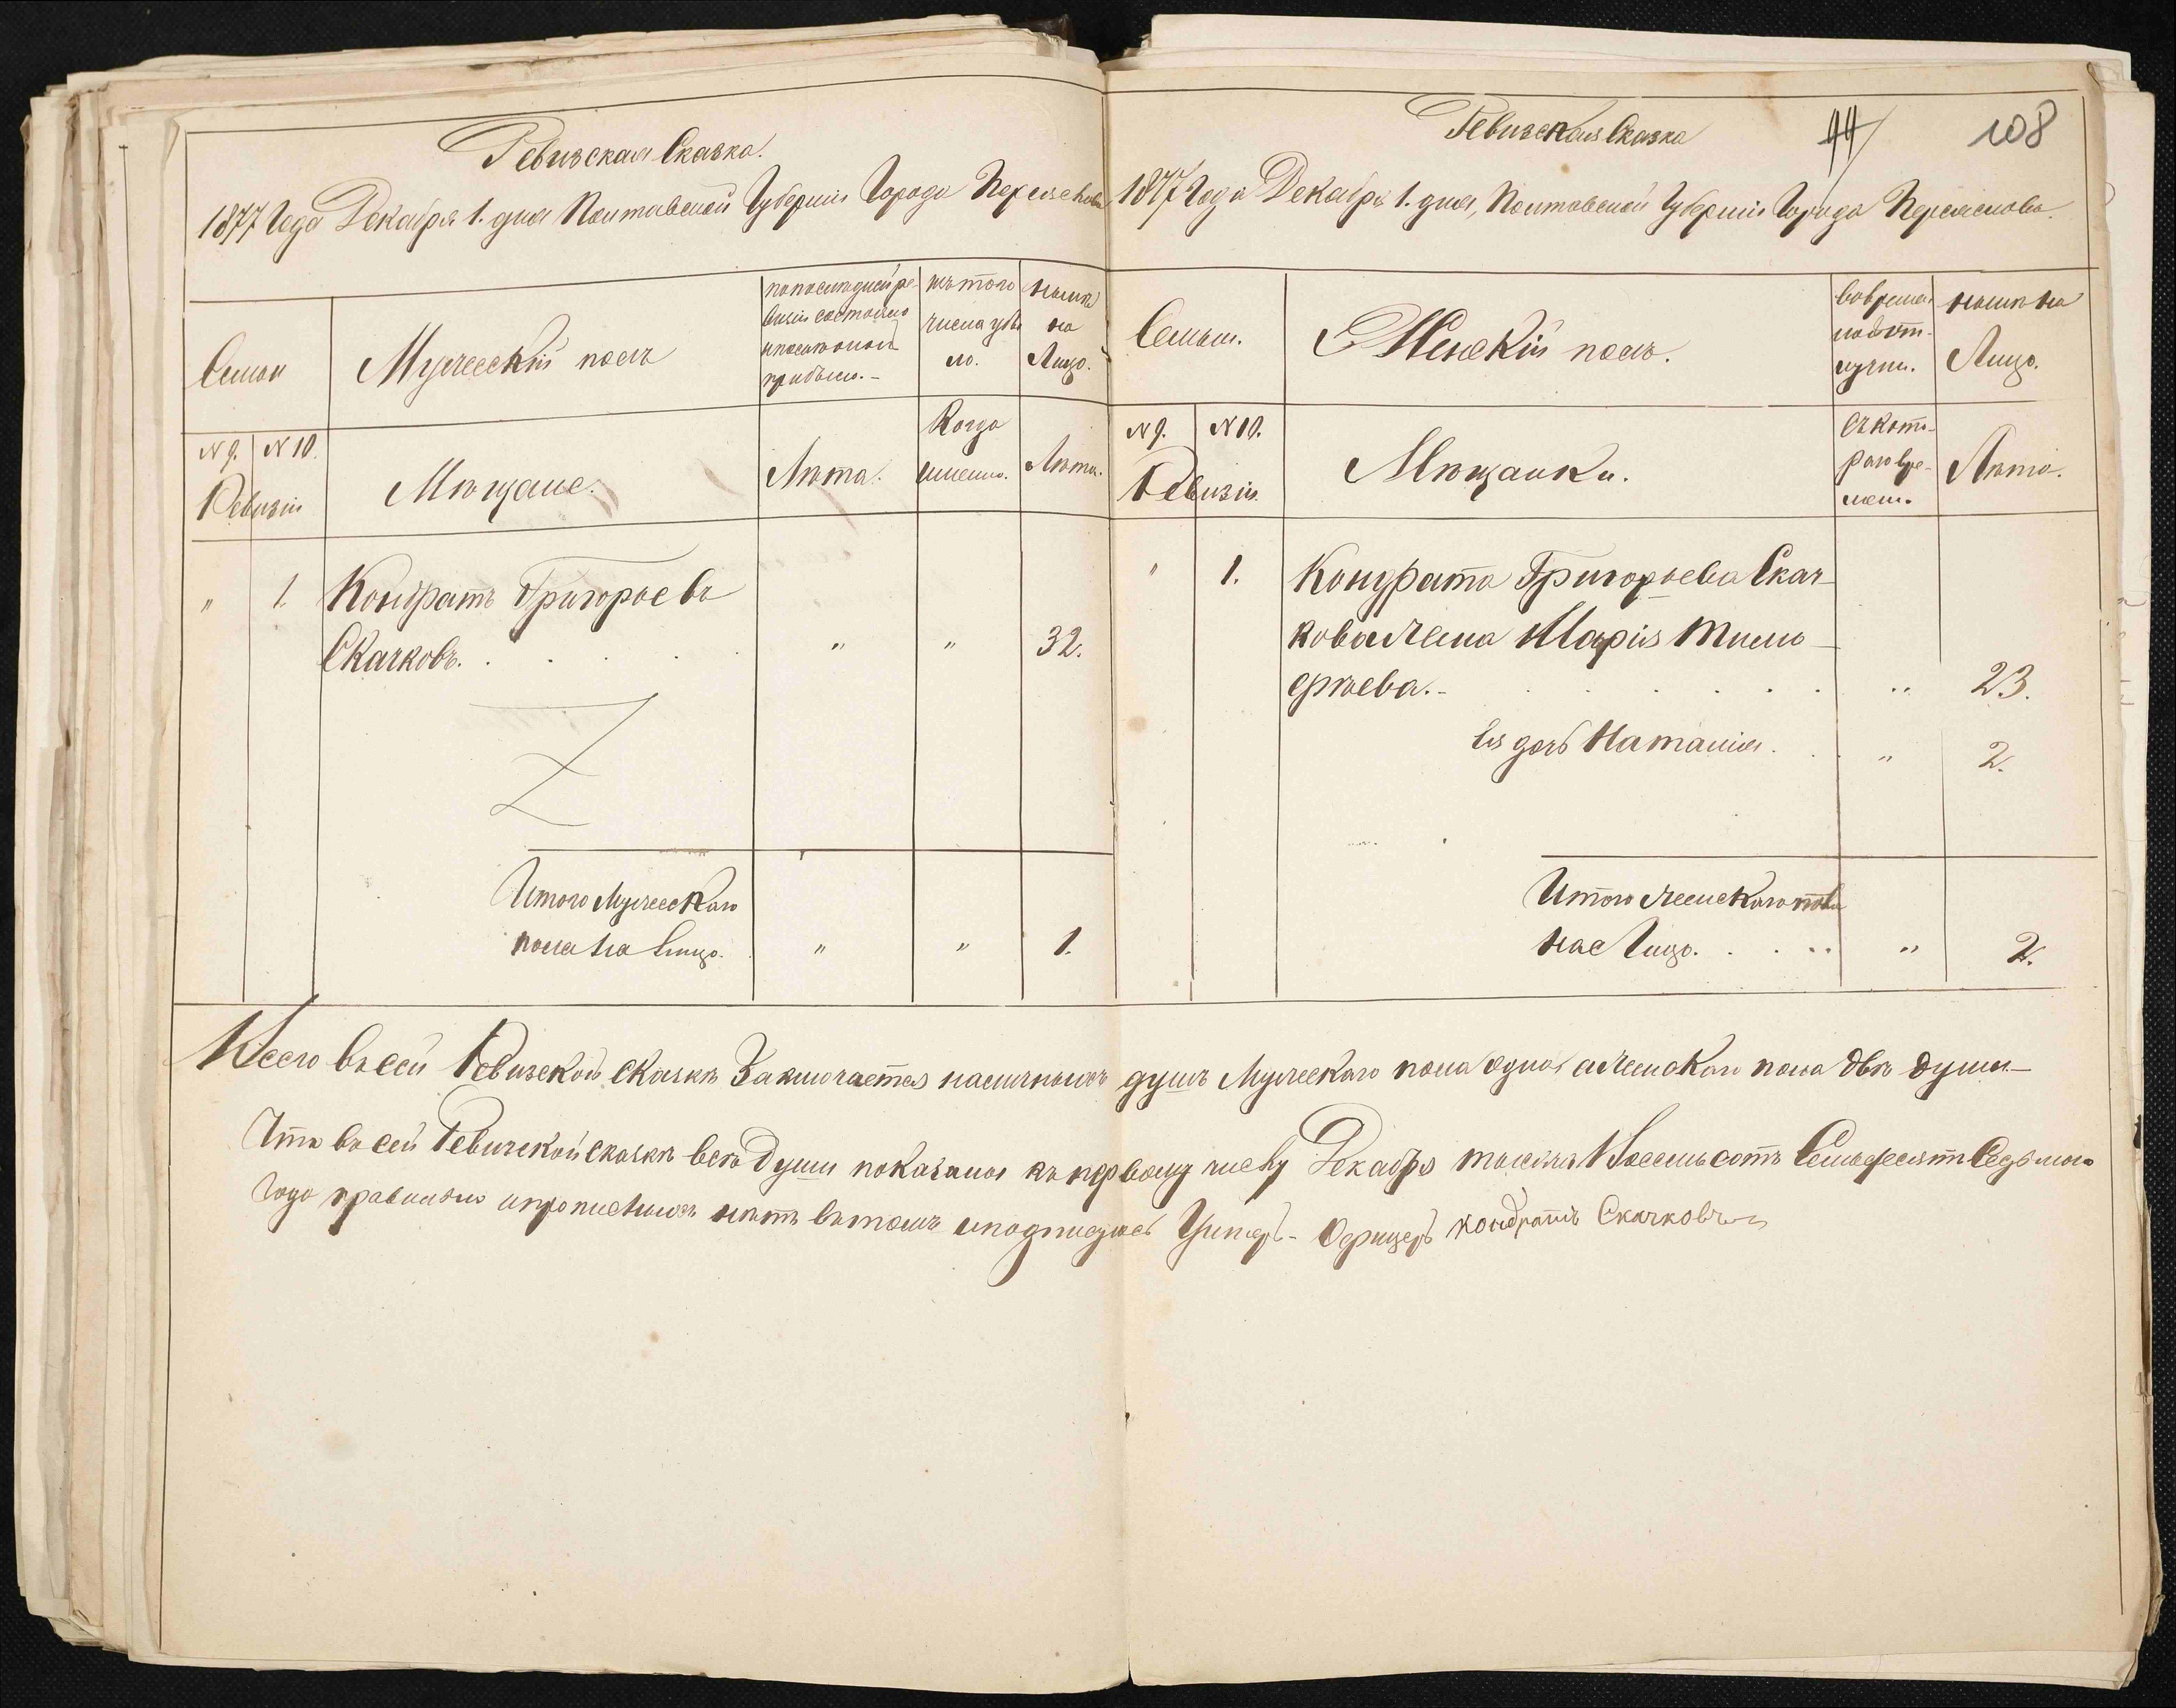 Ревизская Сказка.
1877 Года Декабря 1. дня Полтавской Губернiи Города Переяслова
Семьи
Мужескiй полъ
по последней ре-
визiи состояло
и после оной
прибыло. -
изъ того
числа убы
ло.
ныне
на
Лицо.
N 9. N 10.
Ревизiи
Мѣщане.
Лѣта.
Когда
именно.
Лѣта.
" 1. Кондратъ Григорьевъ
Скачковъ. . . . . " " 32.
Итого Мужескаго
пола на Лицо. " " 1.
Ревизская Сказка
44 108
1877 Года Декабря 1. дня, Полтавской Губернiи Города Переяслова.
Семьи.
Женскiй полъ.
во времен.
ной от-
лучки.
ныне на
Лицо.
N 9. N 10.
Ревизiи.
Мѣщанки.
Съ кото-
раго вре-
мени.
Лѣта.
" 1. Кондрата Григорьева Скач-
кова жена Марiя Тимо-
фѣева. - . . . . . . " 23.
Ея дочь Наталiя. . . " 2.
Итого женскаго пола
на Лицо. . . . " 2.
Всего въ сей Ревизской сказкѣ Заключается наличныхъ душъ Мужескаго пола одна а женскаго пола двѣ души -
Что въ сей Ревизской сказкѣ всѣ Души показаны къ первому числу Декабря тысяча Восемьсотъ Семьдесятъ Седьмого
Года правильно и прописныхъ нѣтъ въ томъ и подписуюсь Унтеръ-Офицеръ Кондратъ Скачковъ